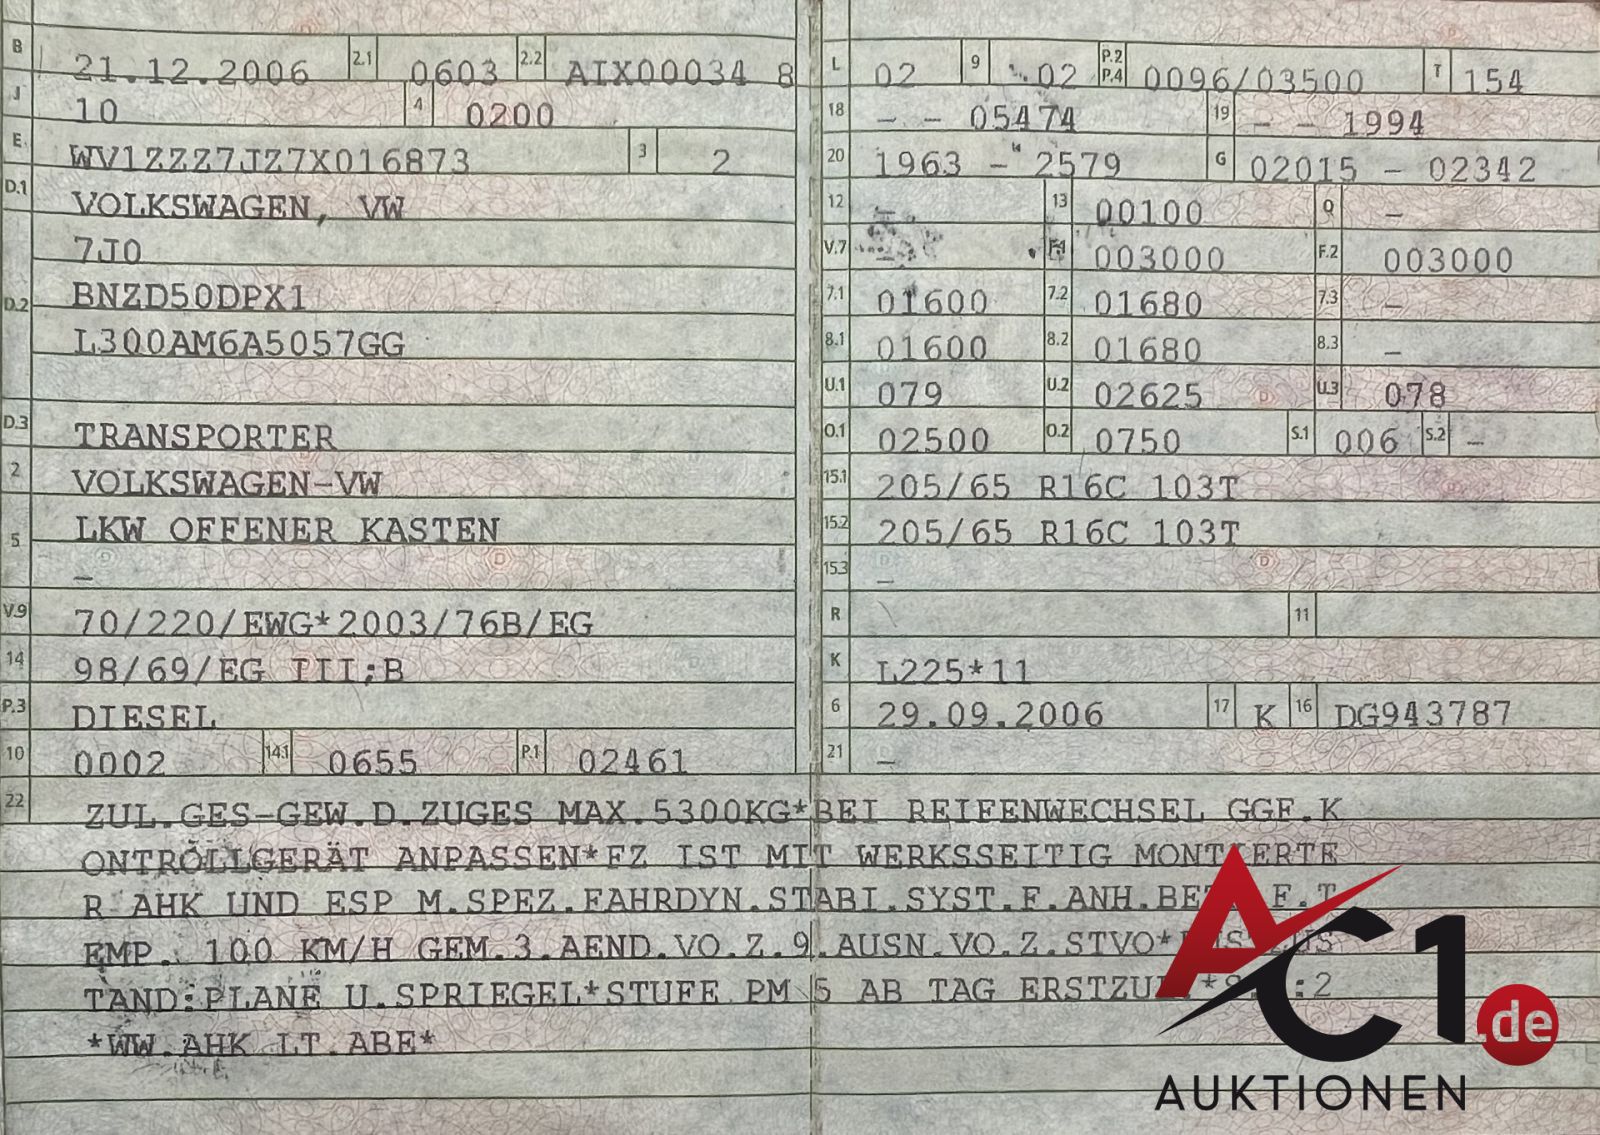 B 21.12.2006 2.1 0603 2.2 AIX00034 8
J 10 4 0200
E WV1ZZZ7JZ7X016873 3 2
D.1 VOLKSWAGEN, VW
7J0
D.2 BNZD50DPX1
L300AM6A5057GG
D.3 TRANSPORTER
2 VOLKSWAGEN-VW
5 LKW OFFENER KASTEN
–
V.9 70/220/EWG*2003/76B/EG
14 98/69/EG III;B
P.3 DIESEL
10 0002 14.1 0655 P.1 02461
L 02 9 02 P.2 P.4 0096/03500 T 154
18 – – 05474 19 – – 1994
20 1963 – 2579 G 02015 – 02342
12 – 13 00100 Q –
V.7 – F.1 003000 F.2 003000
7.1 01600 7.2 01680 7.3 –
8.1 01600 8.2 01680 8.3 –
U.1 079 U.2 02625 U.3 078
O.1 02500 O.2 0750 S.1 006 S.2 –
15.1 205/65 R16C 103T
15.2 205/65 R16C 103T
15.3 –
R 11
K L225*11
6 29.09.2006 17 K 16 DG943787
21 –
22 ZUL.GES-GEW.D.ZUGES MAX.5300KG*BEI REIFENWECHSEL GGF.K
ONTROLLGERÄT ANPASSEN*FZ IST MIT WERKSSEITIG MONTIERTE
R AHK UND ESP M.SPEZ.FAHRDYN.STABI.SYST.F.ANH.BE F.T
EMP. 100 KM/H GEM.3.AEND.VO.Z.9.AUSN.VO.Z.STVO*
TAND:PLANE U.SPRIEGEL*STUFE PM 5 AB TAG ERSTZUL :2
*WW.AHK LT.ABE*
AC1.de
AUKTIONEN